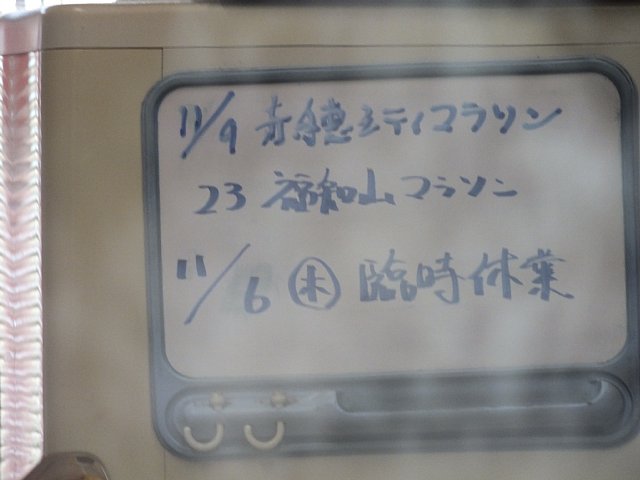 11/9 赤穂シティマラソン
23 福知山マラソン
11/6 ㊍ 臨時休業